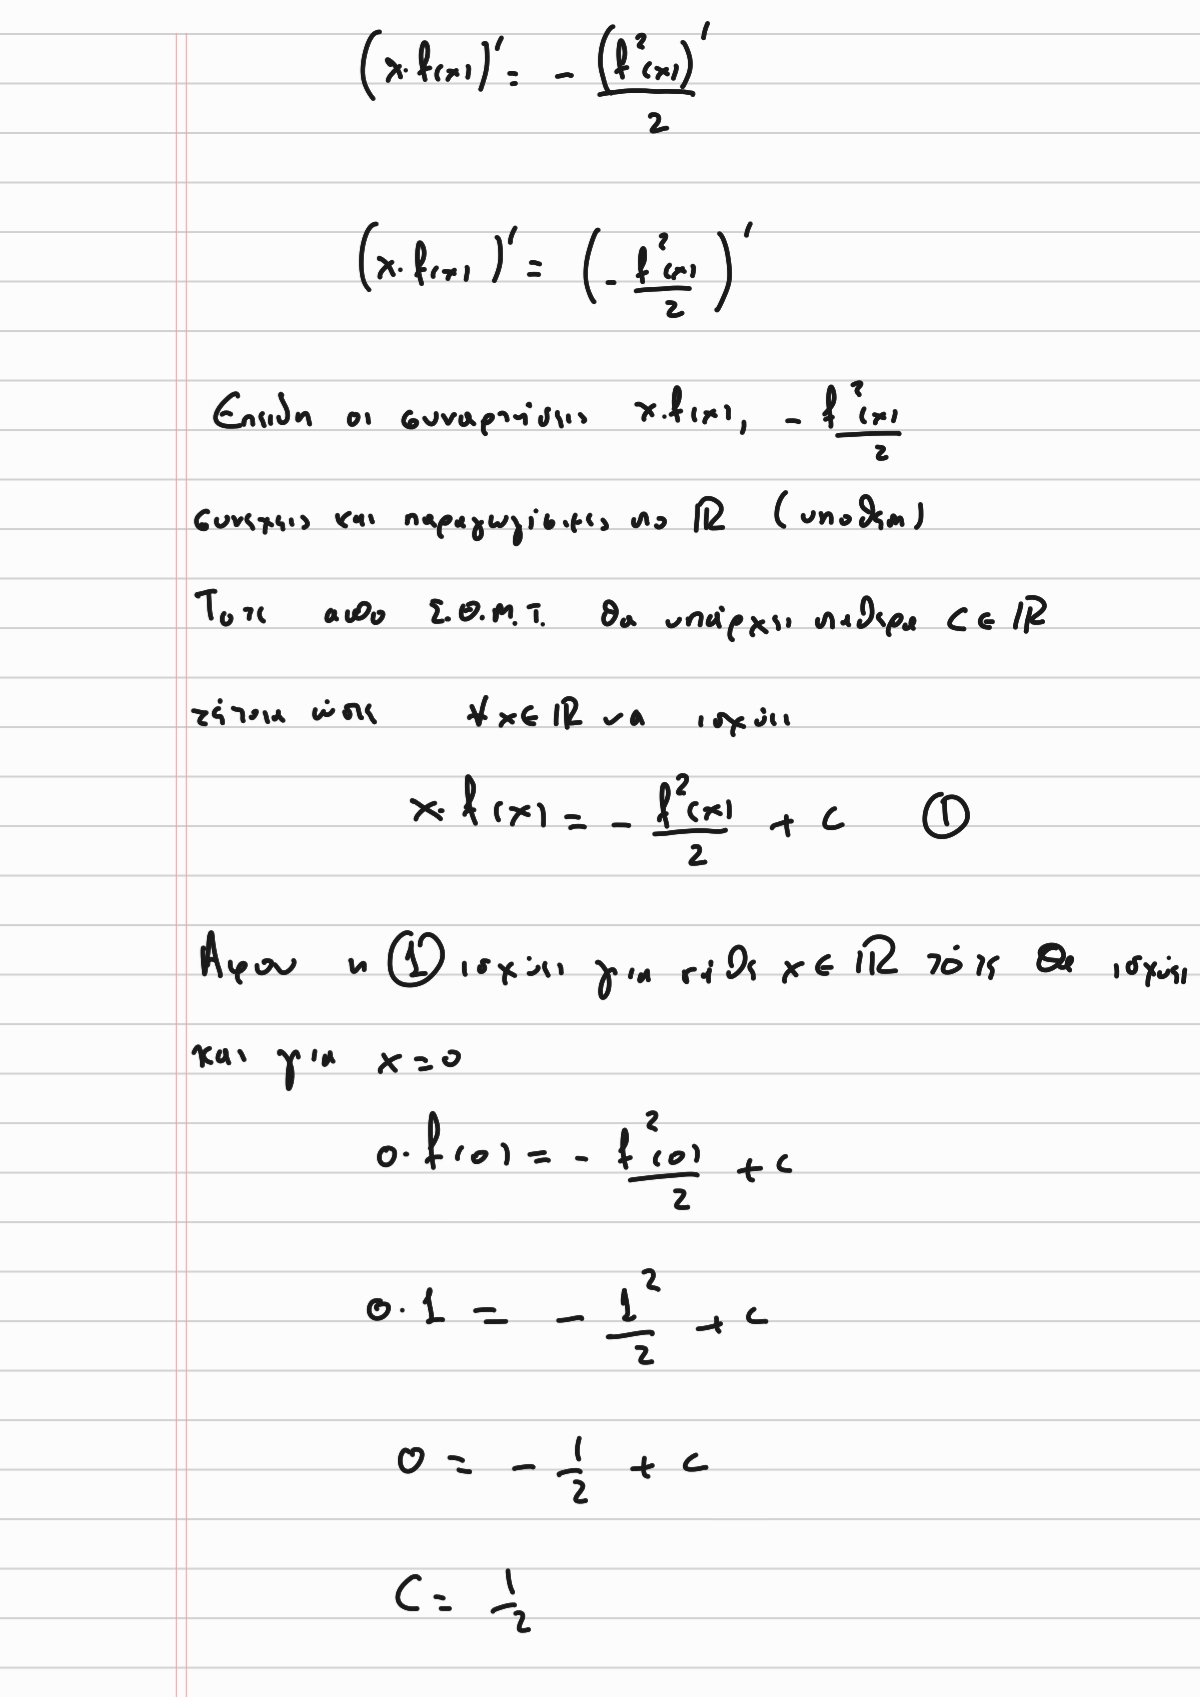 (x·f(x))' = - (f²(x))'/2
(x·f(x))' = (- f²(x)/2)'
Επειδη οι συναρτήσεις x·f(x), - f²(x)/2
συνεχεις και παραγωγίσιμες στο ℝ (υποθεση)
Τοτε απο Σ.Θ.Μ.Τ. θα υπάρχει σταθερα c ∈ ℝ
τέτοια ώστε ∀x∈ℝ να ισχύει
x·f(x) = - f²(x)/2 + c ①
Αφου η ① ισχύει για κάθε x∈ℝ τότε θα ισχύει
και για x=0
0·f(0) = - f²(0)/2 + c
0·1 = - 1²/2 + c
0 = - 1/2 + c
C = 1/2